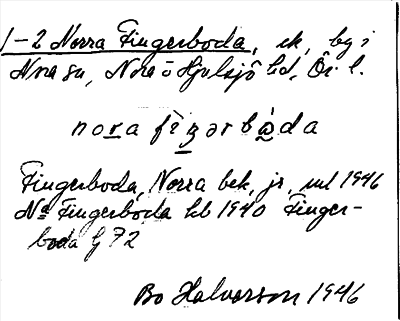 1-2 Norra Fingerboda, ek, by i
Nora sn, Nora o Hjulsjö hd, Ör. l.
nora fìŋərbòda
Fingerboda, Norra bek, jr, ml 1946
Na Fingerboda kb 1940 Finger-
boda G 72
Bo Halvarson 1946